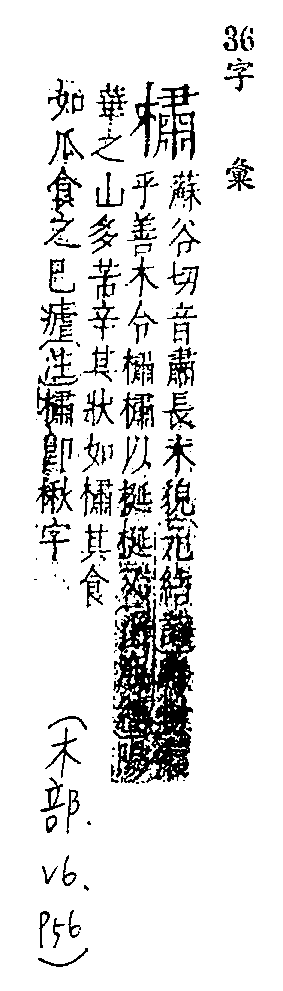 36
字彙
橚
蘇谷切音肅長木貌
乎善木分橚橚以梃梃
華之山多苦辛其狀如橚其食
如瓜食之已瘧注橚卽楸字
(木部.
V6、
P56)